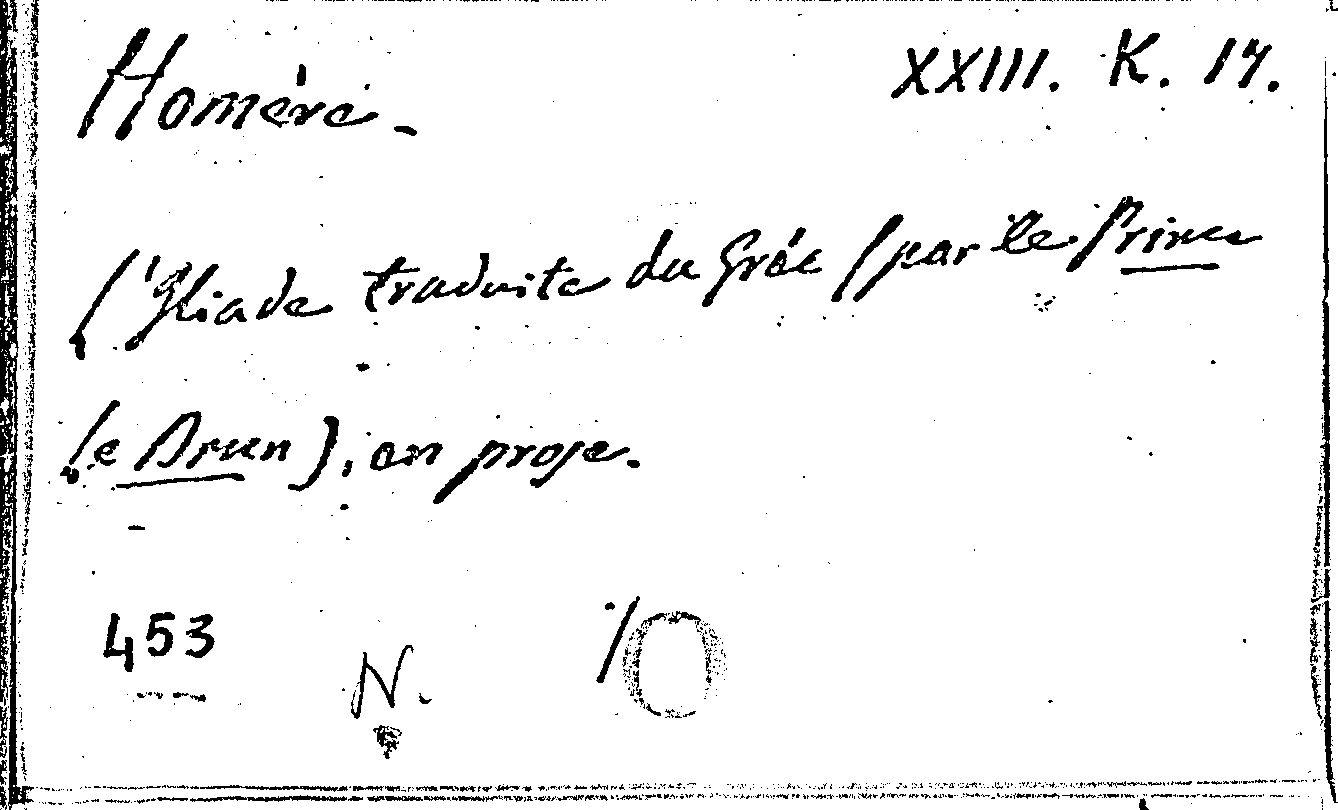 Homère - XXIII. K. 17.
l'Iliade traduite du Gréc (par le Prince
le Brun), en prose.
453 N. /O